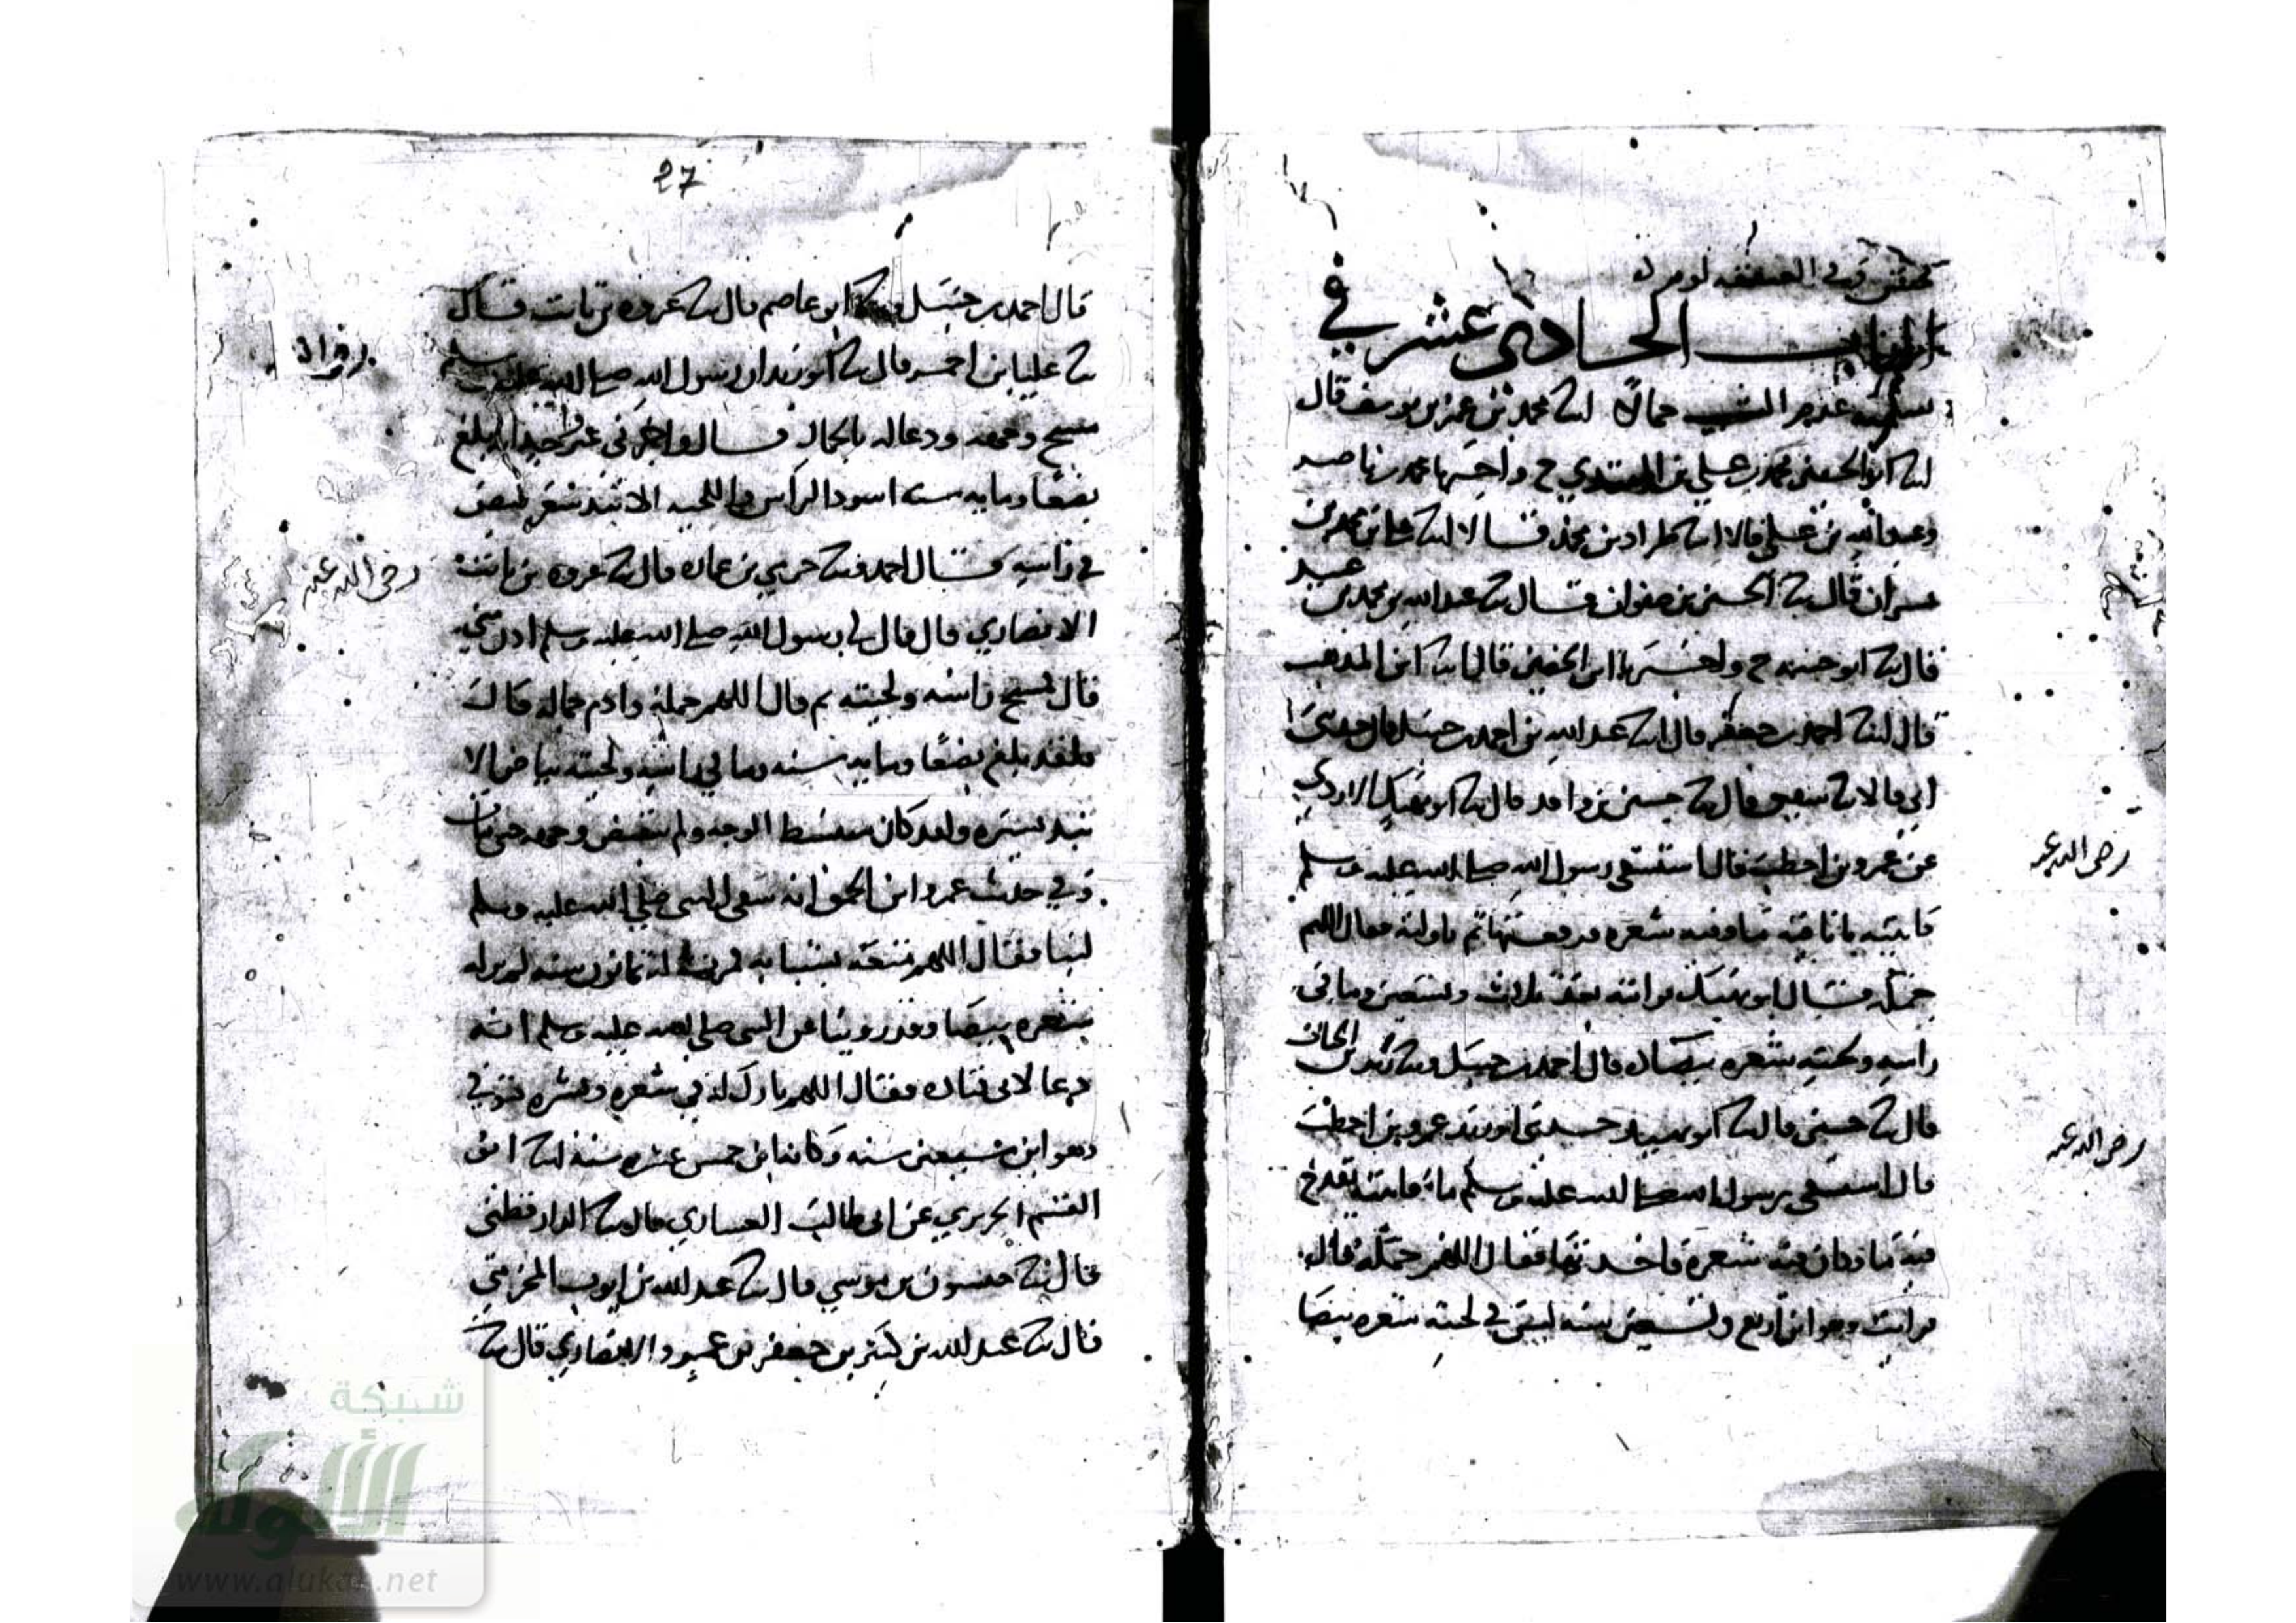 الباب الحادي عشر في
عدم الشيب جمالا انا محمد بن عمر بن يوسف قال
انا ابو الحسين محمد بن علي بن المهتدي ح واخبرنا محمد بن ناصر
قالا انا طراد بن محمد قال انا علي بن محمد بن
بشران قال ثنا الحسين بن صفوان قال ثنا عبد الله بن محمد بن عبيد
قال ثنا ابو خيثمة ح واخبرنا ابن الحصين قال انا ابن المذهب
قال انا احمد بن جعفر قال ثنا عبد الله بن احمد بن حنبل قال حدثني
ابي قالا ثنا قال ثنا حسين بن واقد قال ثنا ابو نهيك الازدي
عن عمرو بن اخطب قال استسقى رسول الله صلى الله عليه وسلم
رضي الله عنه
فاتيته باناء فيه ماء وفيه شعرة فرفعتها ثم ناولته فقال اللهم
جمله فقال ابو نهيك فرايته بعد ثلاث وتسعين وما في
راسه ولحيته شعرة بيضاء قال احمد بن حنبل وثنا زيد بن الحباب
قال ثنا حسين قال ثنا ابو نهيك حدثني ابو زيد عمرو بن اخطب
رضي الله عنه
قال استسقى رسول الله صلى الله عليه وسلم ماء فاتيته بقدح
فيه ماء وكان فيه شعرة فاخذتها فقال اللهم جمله قال
فرايت وهو ابن اربع وتسعين سنه ليس في لحيته شعره بيضا
27
قال احمد بن حنبل وثنا ابو عاصم قال ثنا عزره بن ثابت قال
ثنا علبا بن احمر قال ثنا ابو زيد ان رسول الله صلى الله عليه وسلم
مسح وجهه ودعا له بالجمال قال واخبرني غير واحد انه بلغ
بضعا ومايه سنه اسود الراس واللحيه الا نبذ شعر بيض
في راسه وقال احمد وثنا حرمي بن عماره قال ثنا عزره بن ثابت
رضي الله عنه
الانصاري قال قال لي رسول الله صلى الله عليه وسلم ادن مني
قال فمسح راسه ولحيته ثم قال اللهم جمله وادم جماله قال
فلقد بلغ بضعا ومايه سنه وما في راسه ولحيته بياض الا
نبذ يسيره ولقد كان منبسط الوجه ولم ينقبض وجهه حتى مات
وفي حديث عمرو ابن الحمق انه سقى النبي صلى الله عليه وسلم
لبنا فقال اللهم متعه بشبابه فمرت له ثمانون سنه لم ير له
شعره بيضا وقد روينا عن النبي صلى الله عليه وسلم انه
دعا لابي قتاده فقال اللهم بارك له في شعره وبشره فتوفي
وهو ابن سبعين سنه وكانه ابن خمس عشره سنه انا ابو
القسم الحريري عن ابي طالب العشاري قال ثنا الدارقطني
قال ثنا بن موسي قال ثنا عبد الله بن ايوب المخرمي
قال ثنا عبد الله بن كثير بن جعفر بن عمرو الانصاري قال ثنا
شبكة
الألوكة
www.alukah.net